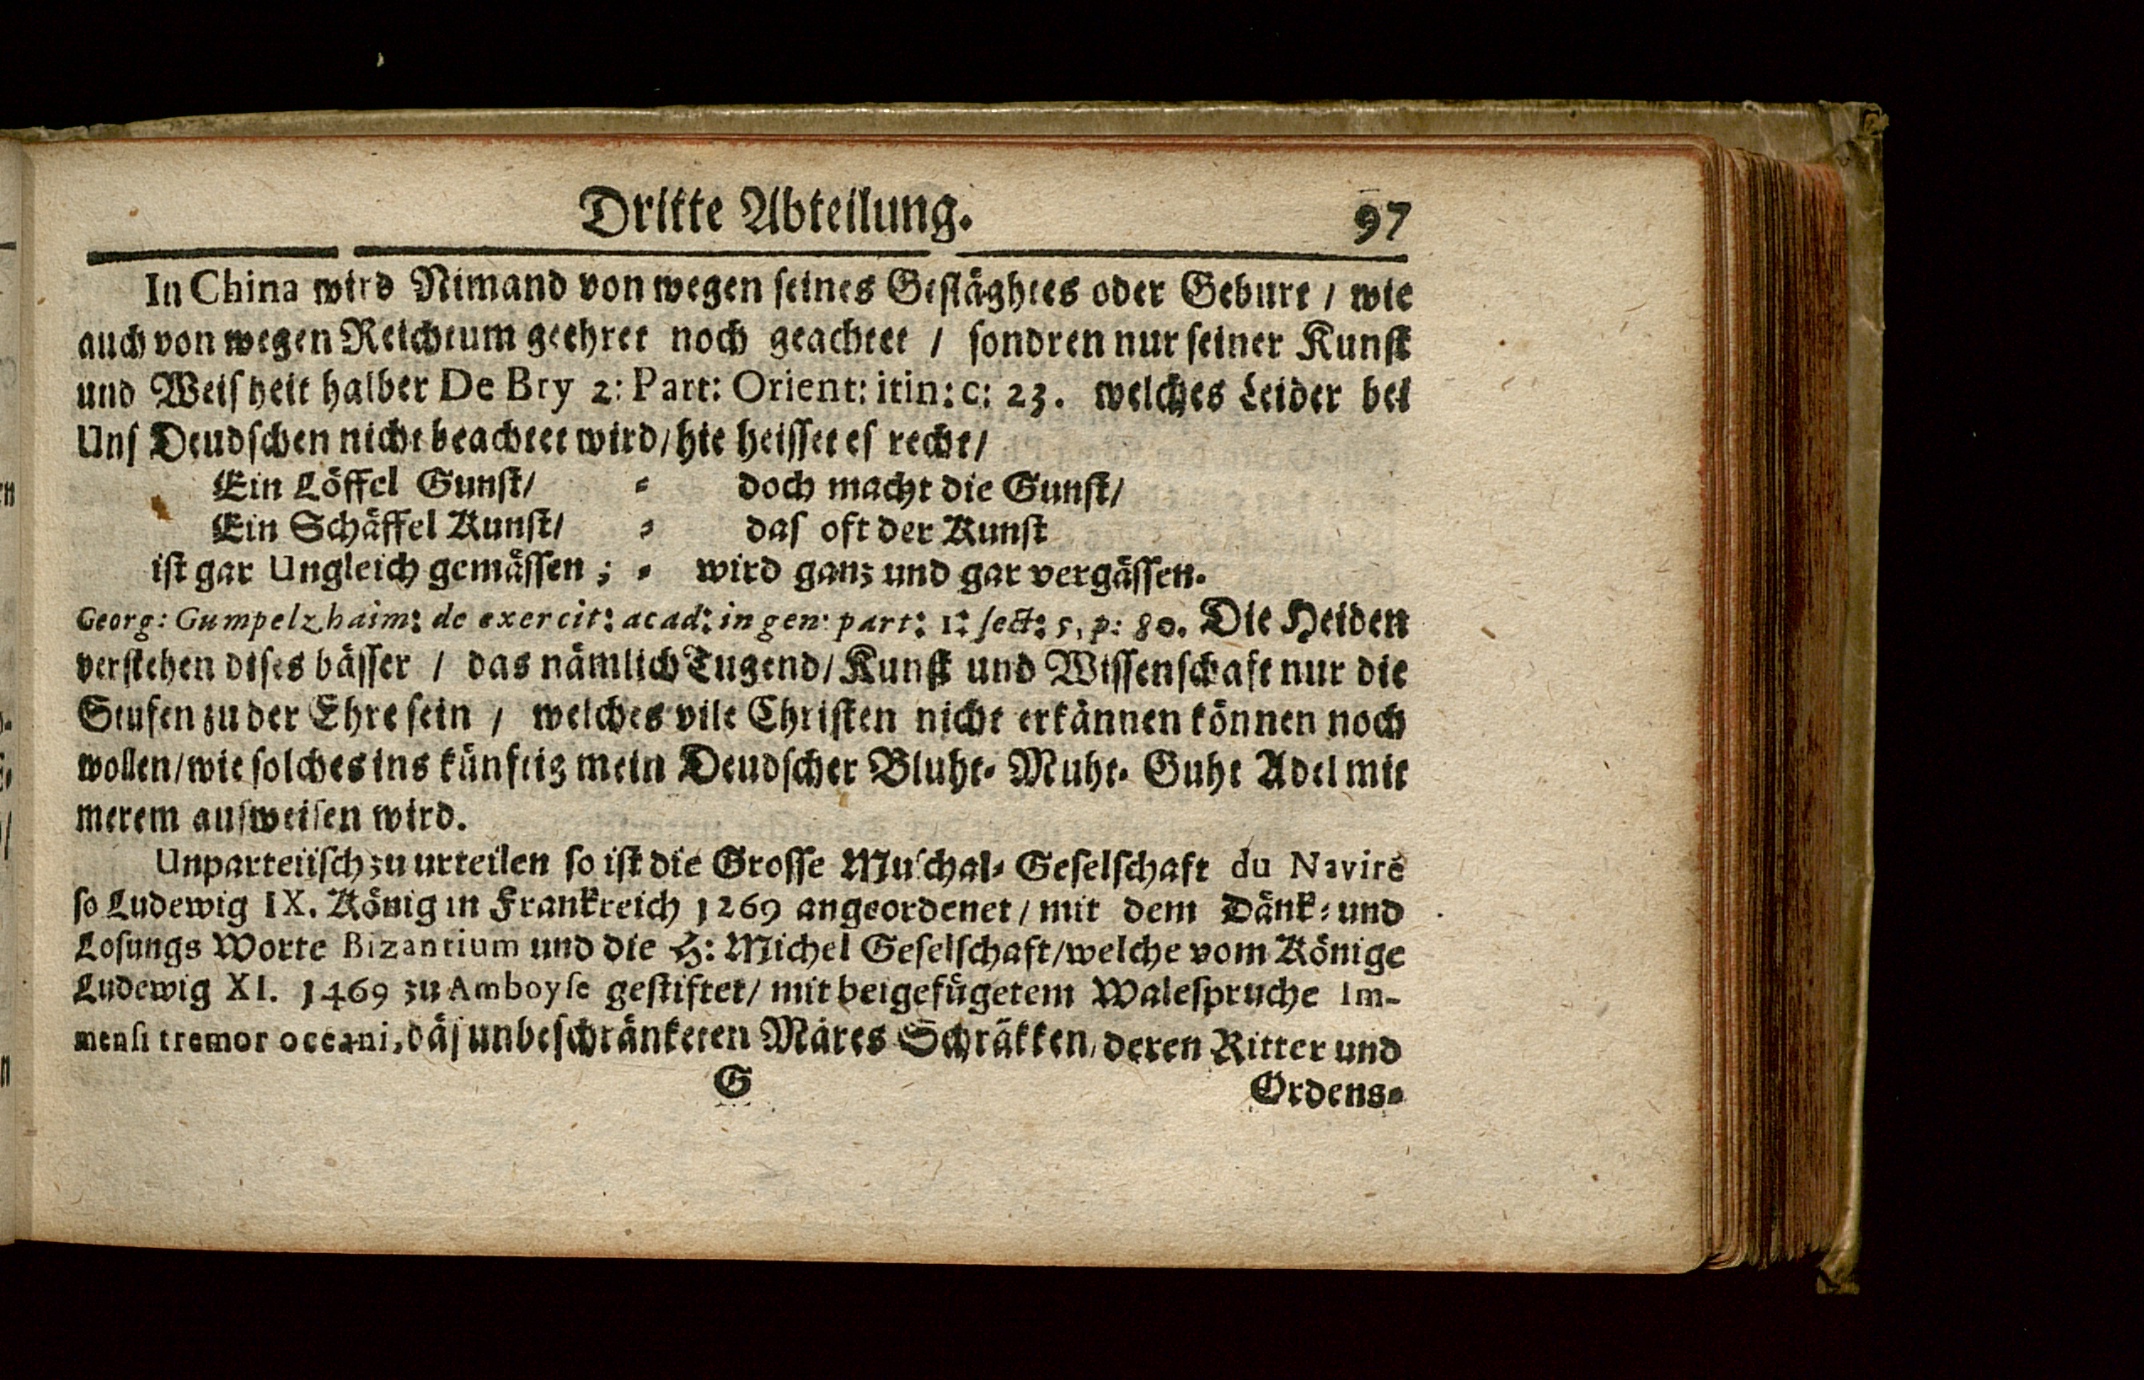 Dritte Abteilung. 97
In China wird Nimand von wegen seines Gesläghtes oder Geburt / wie
auch von wegen Reichtum geehret noch geachtet / sondren nur seiner Kunst
und Weisheit halber De Bry 2: Part: Orient: itin: c: 23. welches Leider bei
Uns Deudschen nicht beachtet wird / hie heisset es recht /
Ein Löffel Gunst / = doch macht die Gunst /
Ein Schäffel Kunst / = das oft der Kunst
ist gar Ungleich gemässen ; = wird ganz und gar vergässen.
Georg: Gumpelzhaim: de exercit: acad: in gen: part: 1: sect: 5, p: 80. Die Heiden
verstehen dises bässer / das nämlich Tugend / Kunst und Wissenschaft nur die
Stufen zu der Ehre sein / welches vile Christen nicht erkännen können noch
wollen / wie solches ins künftig mein Deudscher Bluht= Muht= Guht Adel mit
merem ausweisen wird.
Unparteiisch zu urteilen so ist die Grosse Muschal= Geselschaft du Navire
so Ludewig IX. König in Frankreich 1269 angeordenet / mit dem Dänk= und
Losungs Worte Bizantium und die H: Michel Geselschaft / welche vom Könige
Ludewig XI. 1469 zu Amboyse gestiftet / mit beigefügetem Walespruche Im-
mensi tremor oceani, däs unbeschränketen Märes Schräkken, deren Ritter und
G Ordens=